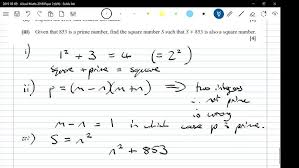 (iii) Given that 853 is a prime number, find the square number S such that S + 853 is also a square number.
[4]
i) 1² + 3 = 4 (= 2²)
Square + prime = square
ii) p = (m - n)(m + n) ⟹ two integers
is not prime
is wrong
m - n = 1 in which case p is prime.
iii) S = n²
n² + 853